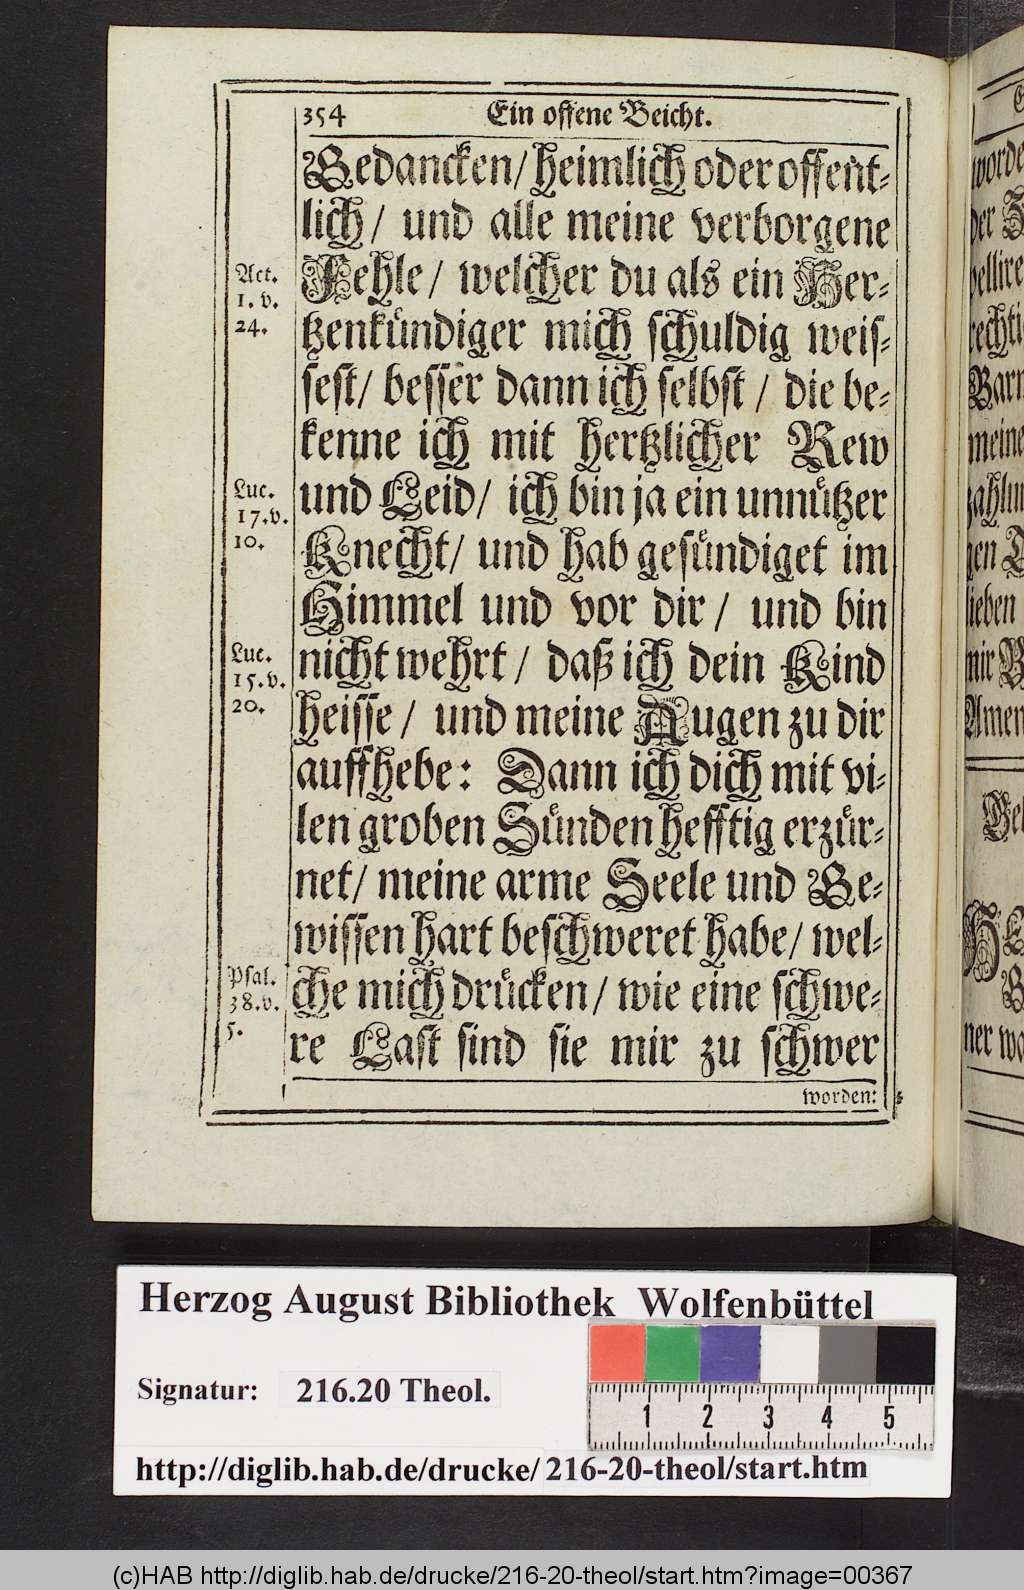 354 Ein offene Beicht.
Gedancken/ heimlich oder offent-
lich/ und alle meine verborgene
Fehle/ welcher du als ein Her-
tzenkündiger mich schuldig weis-
sest/ besser dann ich selbst/ die be-
kenne ich mit hertzlicher Rew
und Leid/ ich bin ja ein unnützer
Knecht/ und hab gesündiget im
Himmel und vor dir/ und bin
nicht wehrt/ daß ich dein Kind
heisse/ und meine Augen zu dir
auffhebe: Dann ich dich mit vi-
len groben Sünden hefftig erzür-
net/ meine arme Seele und Ge-
wissen hart beschweret habe/ wel-
che mich drücken/ wie eine schwe-
re Last sind sie mir zu schwer
worden:
Act.
1. v.
24.
Luc.
17. v.
10.
Luc.
15. v.
20.
Psal.
38. v.
5.
Herzog August Bibliothek Wolfenbüttel
Signatur: 216.20 Theol.
1 2 3 4 5
http://diglib.hab.de/drucke/216-20-theol/start.htm
(c)HAB http://diglib.hab.de/drucke/216-20-theol/start.htm?image=00367